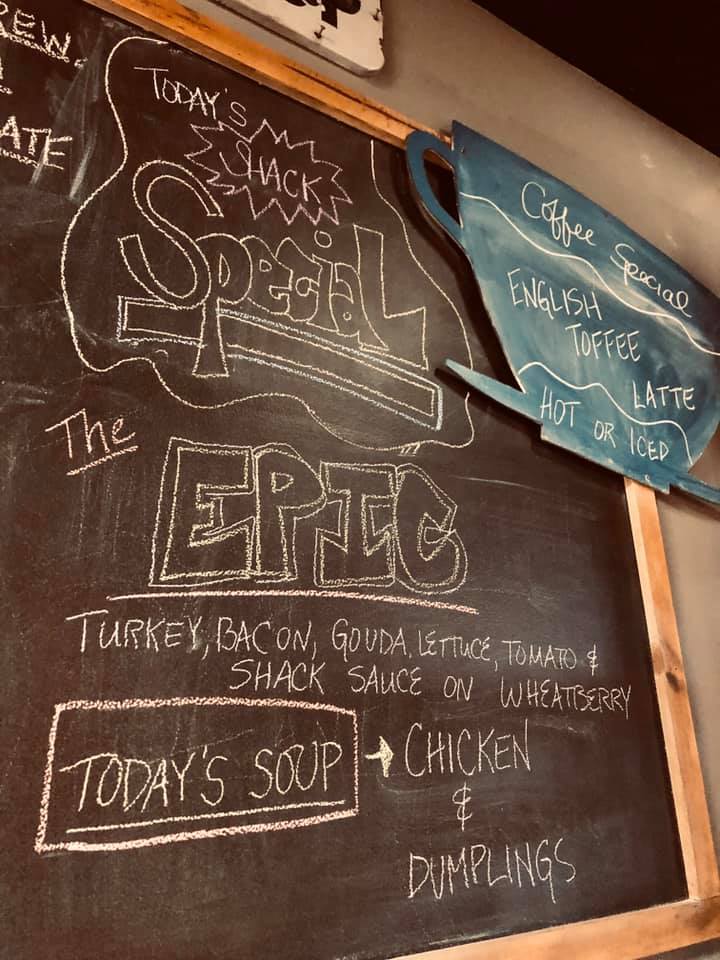 TODAY'S
SHACK
SPECIAL
The
EPIC
TURKEY, BACON, GOUDA, LETTUCE, TOMATO &
SHACK SAUCE ON WHEATBERRY
TODAY'S SOUP → CHICKEN
&
DUMPLINGS
Coffee Special
ENGLISH
TOFFEE
LATTE
HOT OR ICED